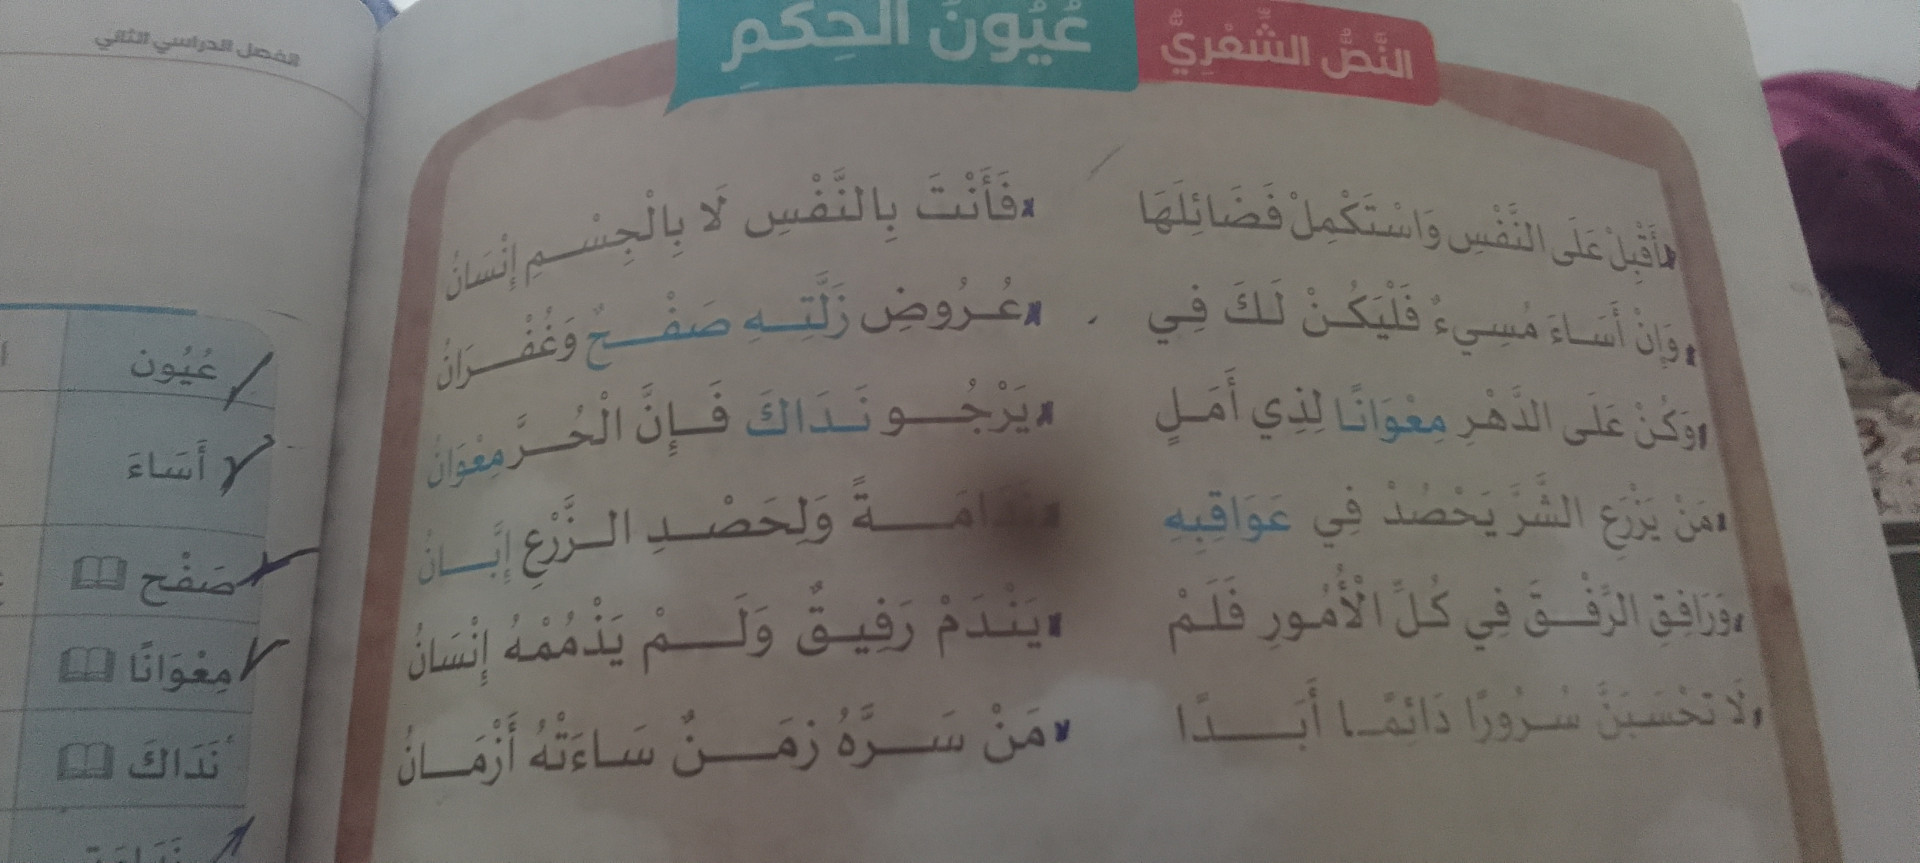 الفصل الدراسي الثاني
النَّصُّ الشِّعْرِيُّ عُيُونُ الْحِكَمِ
أَقْبِلْ عَلَى النَّفْسِ وَاسْتَكْمِلْ فَضَائِلَهَا فَأَنْتَ بِالنَّفْسِ لَا بِالْجِسْمِ إِنْسَانُ
وَإِنْ أَسَاءَ مُسِيءٌ فَلْيَكُنْ لَكَ فِي عُرُوضِ زَلَّتِهِ صَفْحٌ وَغُفْرَانُ
وَكُنْ عَلَى الدَّهْرِ مِعْوَانًا لِذِي أَمَلٍ يَرْجُو نَدَاكَ فَإِنَّ الْحُرَّ مِعْوَانُ
مَنْ يَزْرَعِ الشَّرَّ يَحْصُدْ فِي عَوَاقِبِهِ نَدَامَةً وَلِحَصْدِ الزَّرْعِ إِبَّانُ
وَرَافِقِ الرِّفْقَ فِي كُلِّ الْأُمُورِ فَلَمْ يَنْدَمْ رَفِيقٌ وَلَمْ يَذْمُمْهُ إِنْسَانُ
لَا تَحْسَبَنَّ سُرُورًا دَائِمًا أَبَدًا مَنْ سَرَّهُ زَمَنٌ سَاءَتْهُ أَزْمَانُ
عُيُون
أَسَاءَ
صَفْح
مِعْوَانًا
نَدَاكَ